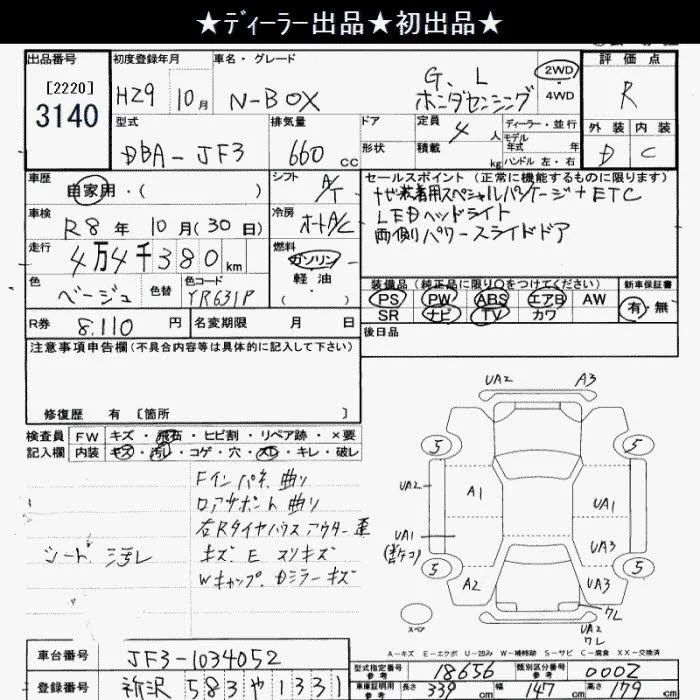 ★ディーラー出品★初出品★
出品番号 初度登録年月 車名・グレード 評価点
[2220]
3140
H29 10月 N-BOX G、L ホンダセンシング 2WD 4WD R
型式 排気量 ドア 定員 4人 ディーラー・並行 外装 内装
DBA-JF3 660cc 形状 積載 kg モデル年式 年 ハンドル 左・右 D C
車歴 自家用・( ) シフト A/T セールスポイント(正常に機能するものに限ります)
車検 R8年10月(30日) 冷房 オートA/C
ナビ装着用スペシャルパッケージ+ETC
LEDヘッドライト
両側パワースライドドア
走行 4万4千380km 燃料 ガソリン 軽油・( )
色 ベージュ 色替 色コード YR631P
装備品(純正品に限り○をつけてください) 新車保証書
PS PW ABS エアB AW 有・無
SR ナビ TV カワ
R券 8,110円 名変期限 月 日 後日品
注意事項申告欄(不具合内容等は具体的に記入して下さい)
修復歴 有 [箇所 ]
検査員記入欄 FW キズ・飛石・ヒビ割・リペア跡・×要
内装 キズ・汚れ・コゲ・穴・スレ・キレ・破レ
Fインパネ曲り
ロアサポート曲り
右Rタイヤハウスアウター歪
キズ、E スリキズ
Wキャップ、ミラーキズ
シート汚レ
UA2 A3
5 5
UA2 A1 UA1
UA1 UA3
5 5
A2 UA3
ワレ
スペア UA2
ワレ
A-キズ E-エクボ U-凹み W-補修跡 S-サビ C-腐食 XX-交換済
車台番号 JF3-1034052
登録番号 新沢 583 や 1331
型式指定番号 参考 18656 類別区分番号 参考 0002
車庫証明用 参考 長さ 339cm 幅 147cm 高さ 179cm